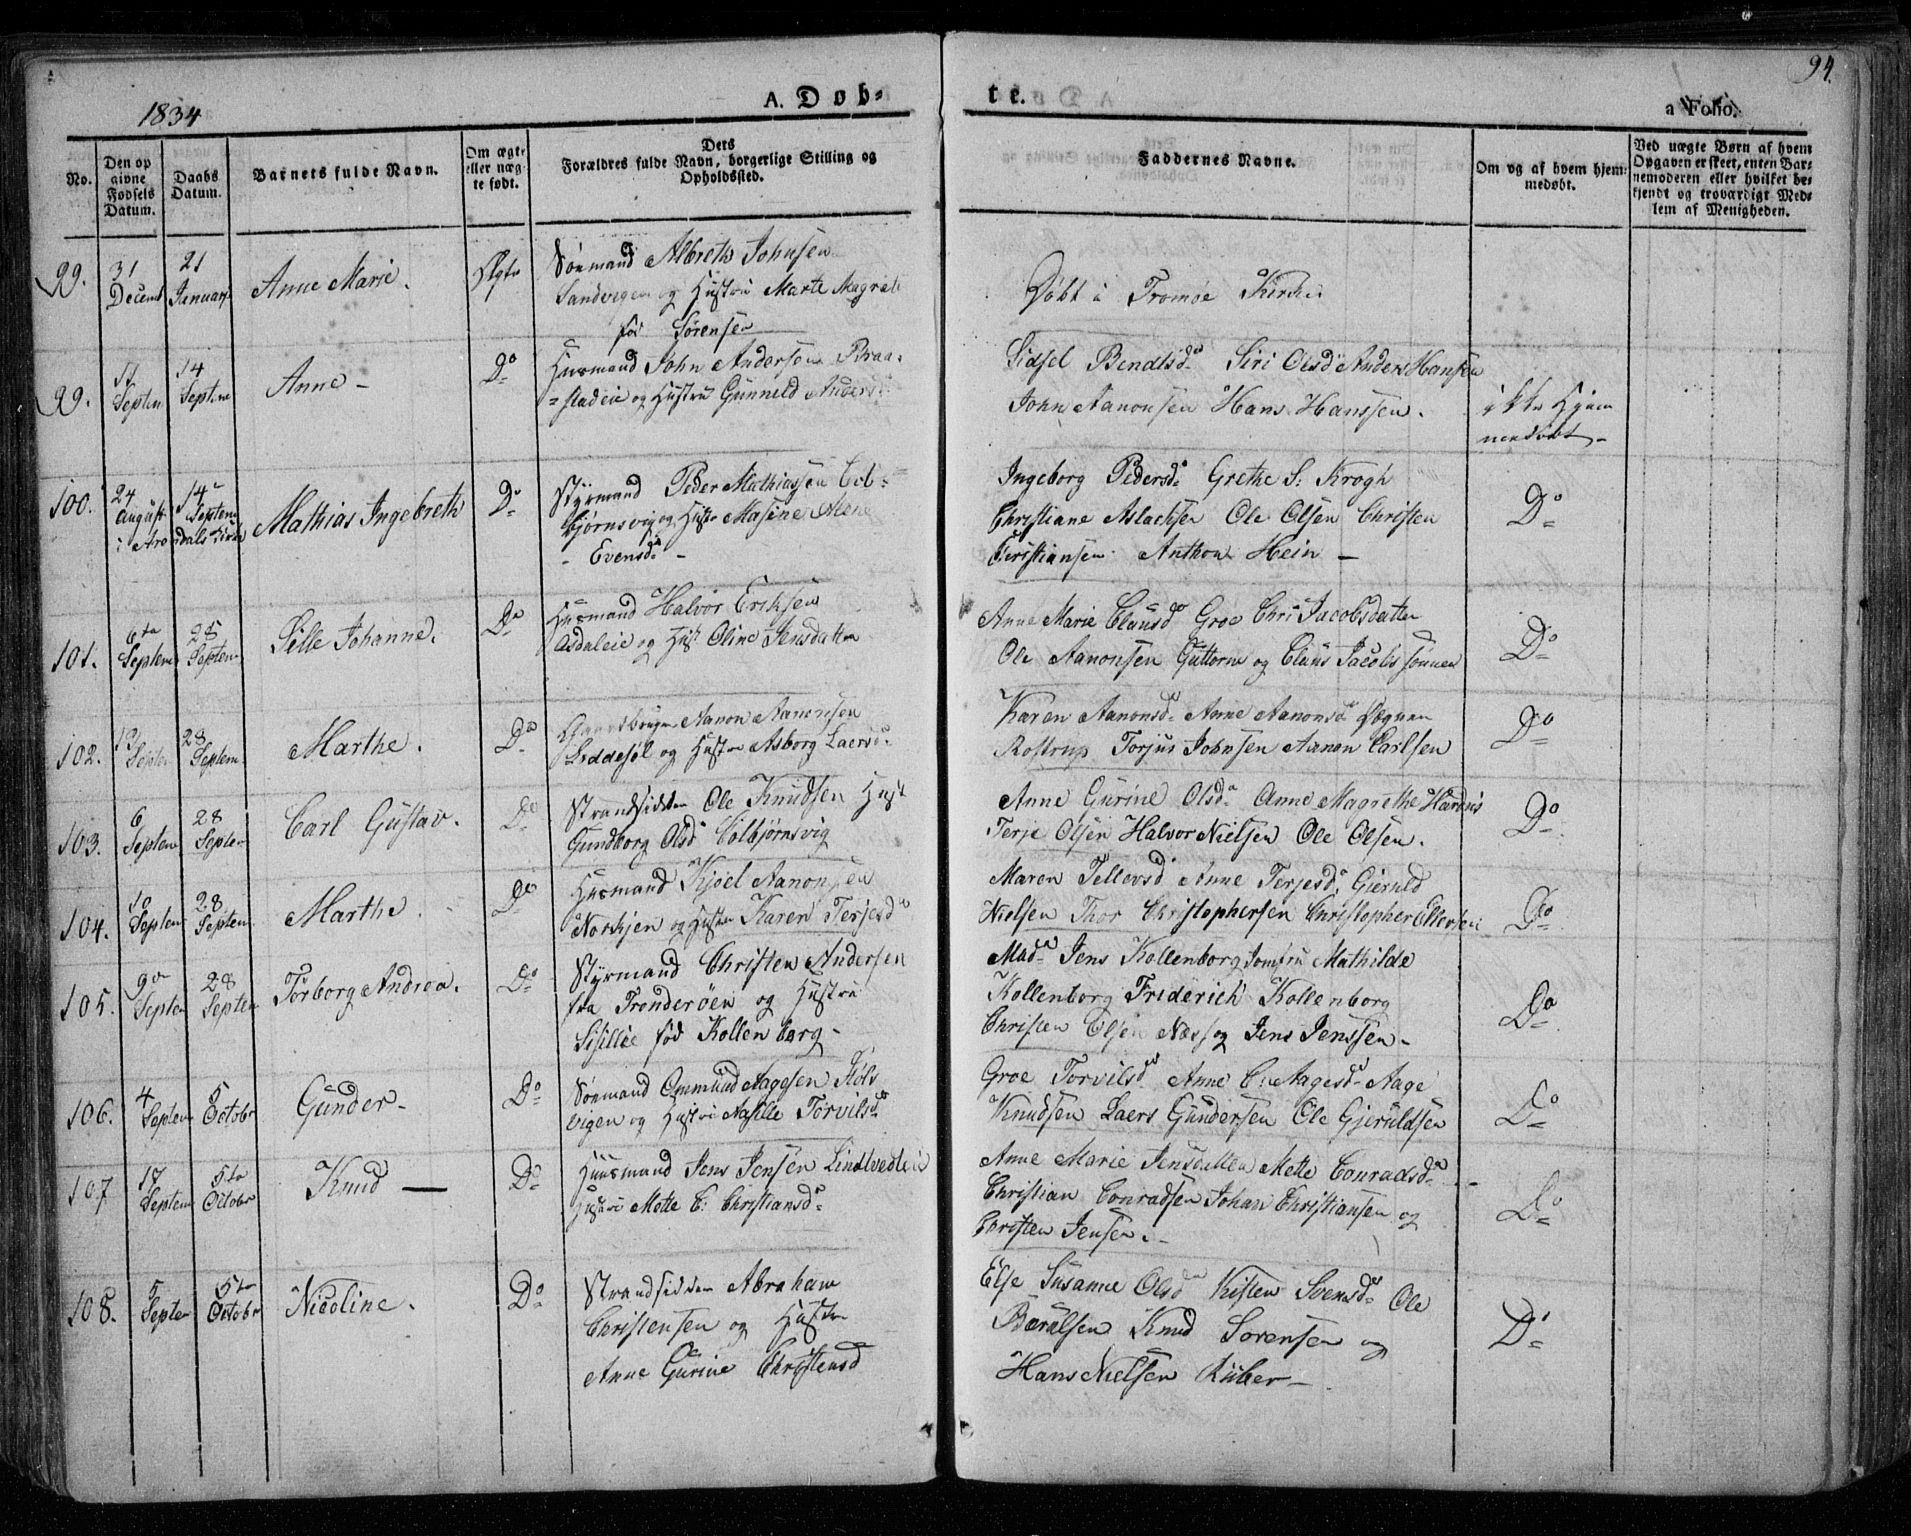 1834
A. Døb-
te.
94.
a Folio.
No.
Den op
givne
Fødsels
Datum.
Daabs
Datum.
Barnets fulde Navn.
Om ægte
eller uæg-
te født.
Dets
Forældres fulde Navn, borgerlige Stilling og
Opholdssted.
Faddernes Navne.
Om og af hvem hjem-
medøbt.
Ved uægte Børn af hvem
Opgaven er skeet, enten Bar-
nemoderen eller hvilket be-
kjendt og troværdigt Med-
lem af Menigheden.
99. 31 Decemb 21 Januar Anne Marie. Ægte Sømand Albreth Johnsen
Sandvigen og Hustru Marte Magrete
fød Sørensen
Døbt i Tromøe Kirke
99. 11 Septem 14 Septem Anne - Do Huusmand John Andersen Braa-
=stadeie og Hustru Gunneld Anders
Sidsel Bendtsd. Siri Olsd Anders Hansen
John Aanonsen Hans Hanssen.
ikke Hjem
mendøbt -
100. 24 August 14 Septem Mathias Ingebreth Do Styrmand Peder Mathiassen Col-
i Arendals Kirke
bjørnsvig og Hust. Masine Alene
- Evensd. -
Ingeborg Pedersd. Grethe S. Krogh
Christiane Aslachsen Ole Olsen Christen
Christiansen. Anthon Hein -
Do
101. 6te Septem 28 Septem Sille Johanne. Do Husmand Halvor Eriksen
Asdaleie og Hust Oline Jensdatter
Anne Marie Clausd Groe Chri Jacobsdatter
Ole Aanonsen Guttorm og Claus Jacobssønner
Do
102. Septem 28 Septem Marthe. Do Gaardbruger Aanon Aanonsen
Løddesøl og Hustru Asborg Laersd.
Karen Aanonsd. Anne Aanonsd.
Rostrup Torjus Johnsen Aanon Carlsen
Do
103. 6 Septem 28 Septem Carl Gustav. Do Strandsidder Ole Knudsen Hust
Gundborg Olsd Colbjørnsvig
Anne Gurine Olsd. Anne Magrethe
Terje Olsen Halvor Nielsen Ole Olsen.
Do
104. 10 Septem 28. Septem Marthe. Do Husmand Kjøel Aanonsen
Neskjen og Hustru Karen Terjesd
Maren Tellevsd Anne Terjesd. Gieruld
Nielsen Thor Christophersen Christopher Ellevsen
Do
105. 9de Septem 28 Septem Torborg Andrea. Do Styrmand Christen Andersen
fra Tronderøen og Hustru
Sisillie fød Kollenborg -
Mad. Jens Kollenborg Jomfru Mathilde
Kollenborg Friderich Kollenborg
Christen Olsen Næs og Jens Jenssen -
Do
106. 4 Septem 5 Octobr Gunder - Do Sømand Ommund Aagesen Støls
vigen og Hustru Aasille Torvilsd.
Groe Torvilsd Anne C. Aagesd. Aage
Knudsen Laers Gundersen Ole Gjeruldsen
Do
107 17 Septem 5te Octobr Knud - Do Huusmand Jens Jensen Lindtvedteie
Hustru Mette C. Christiansd.
Anne Marie Jensdatter Mette Conradsd.
Christian Conradsen Johan Christiansen og
Christen Jensen. -
Do
108. 5 Septem 5te Octobr Nicoline. Do Strandsidder Abraham
Christensen og Hustru
Anne Gurine Christensd
Else Susanne Olsd Kisten Svensd. Ole
Bærulsen Knud Sørensen og
Hans Nielsen Kiiber -
Do